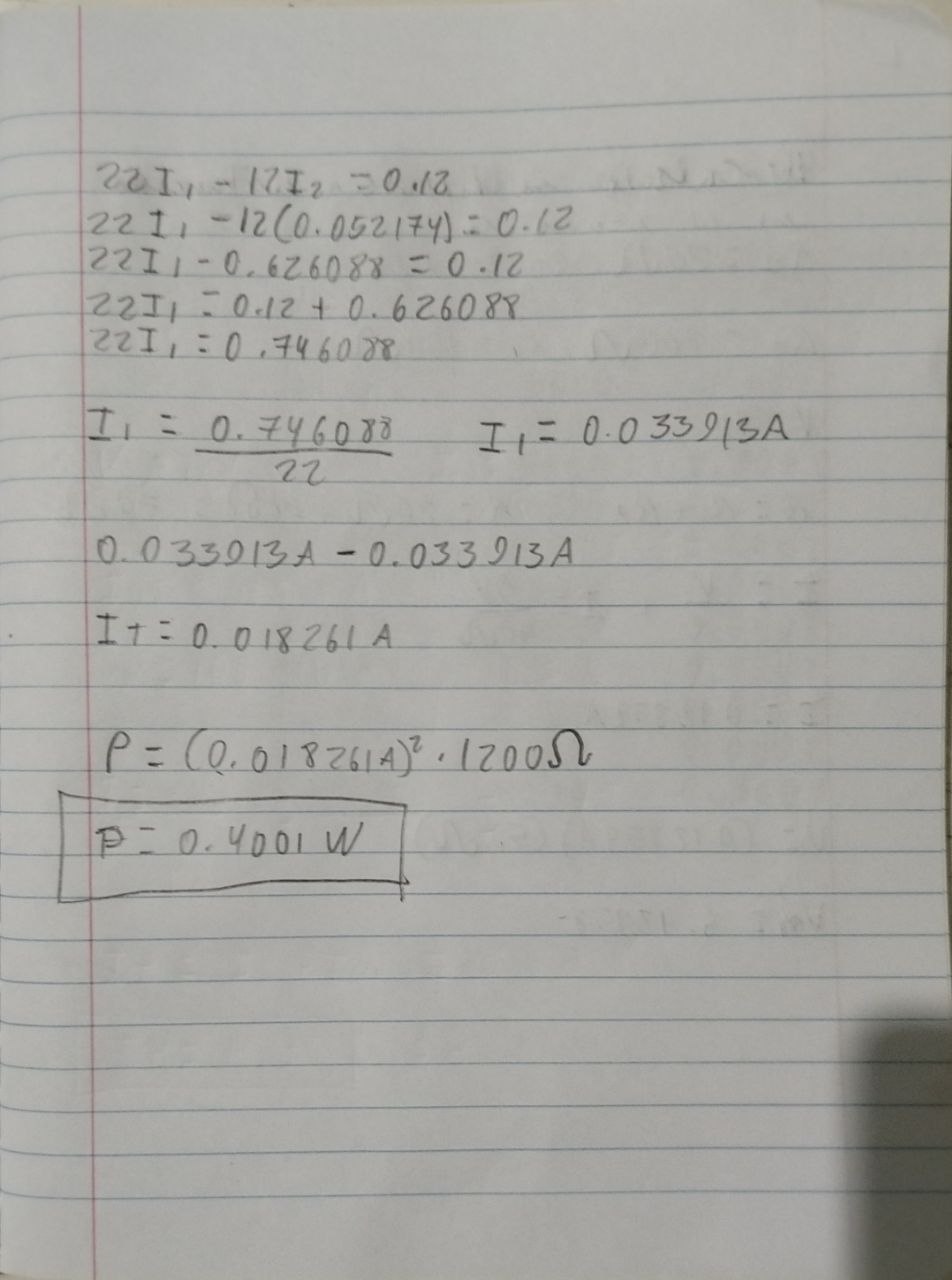 22I₁ - 12I₂ = 0.12
22I₁ - 12(0.052174) = 0.12
22I₁ - 0.626088 = 0.12
22I₁ = 0.12 + 0.626088
22I₁ = 0.746088
I₁ = 0.746088/22 I₁ = 0.033913A
0.033913A - 0.033913A
IT = 0.018261A
P = (0.018261A)² · 1200Ω
P = 0.4001 W